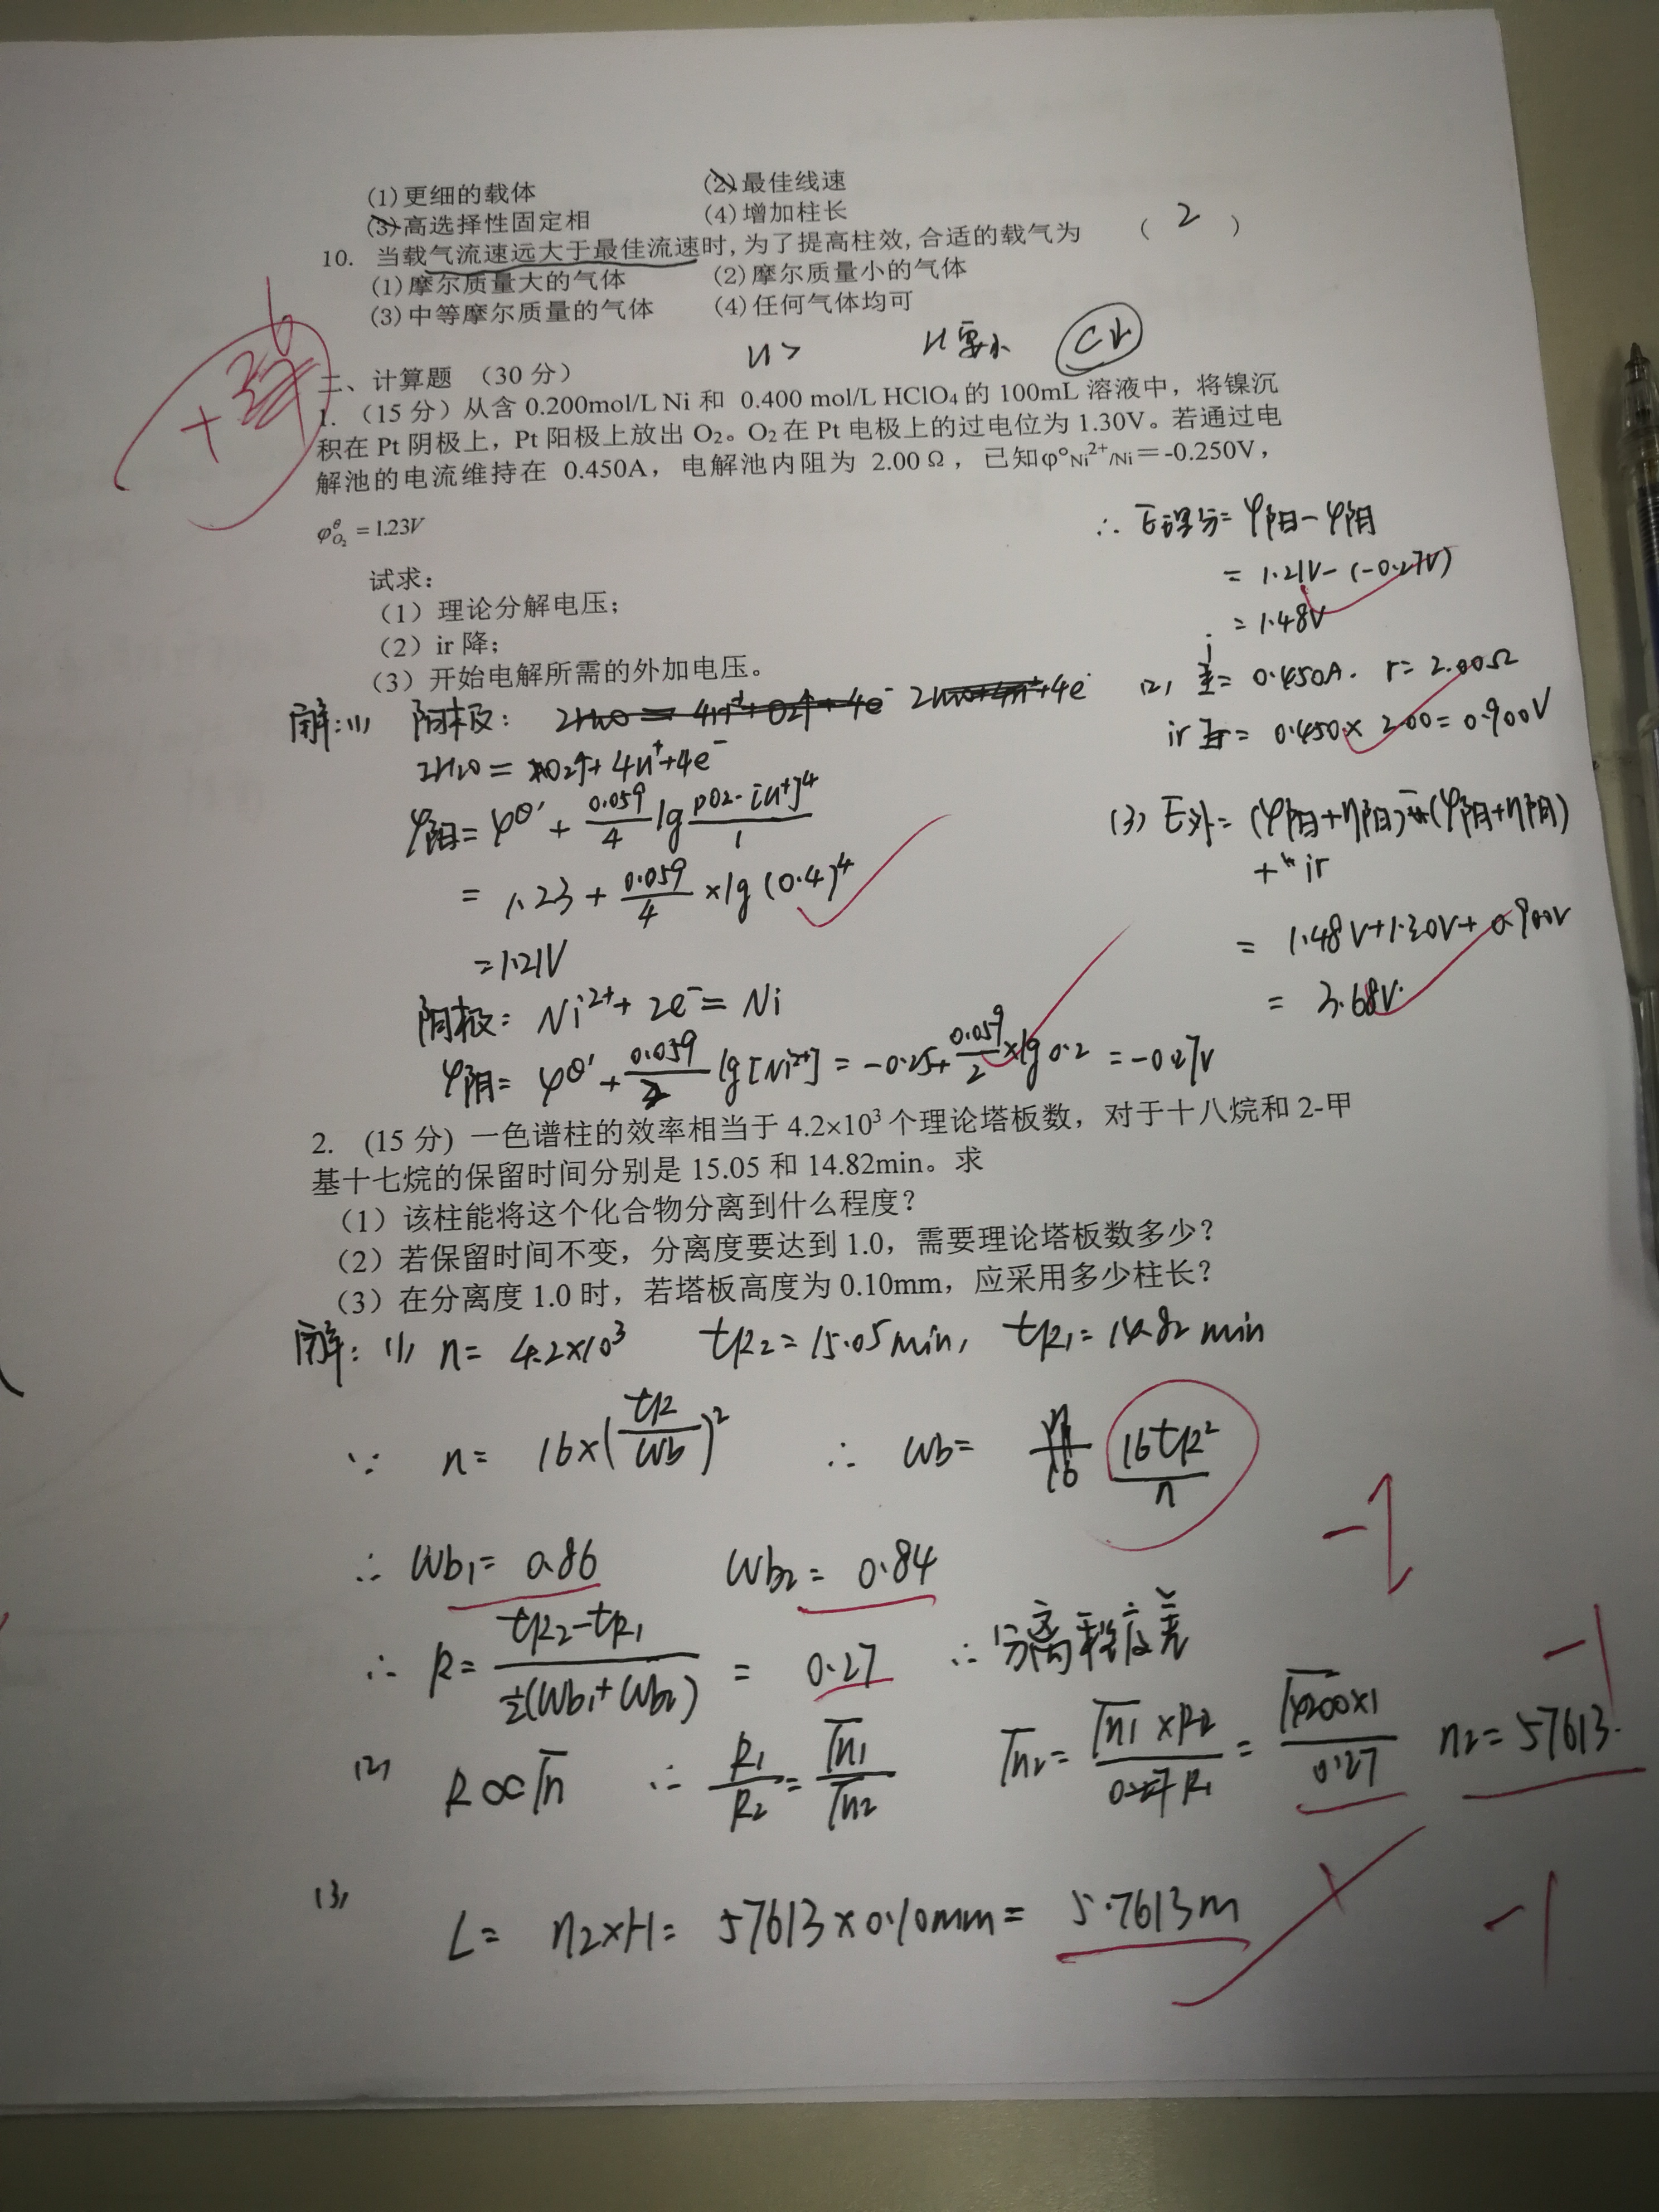 (1)更细的载体 (2)最佳线速
(3)高选择性固定相 (4)增加柱长
10. 当载气流速远大于最佳流速时,为了提高柱效,合适的载气为 ( 2 )
(1)摩尔质量大的气体 (2)摩尔质量小的气体
(3)中等摩尔质量的气体 (4)任何气体均可
u> H要小 C↓
+ 6
二、计算题 (30 分)
1. (15 分) 从含 0.200mol/L Ni 和 0.400 mol/L HClO₄ 的 100mL 溶液中，将镍沉
积在 Pt 阴极上，Pt 阳极上放出 O₂。O₂ 在 Pt 电极上的过电位为 1.30V。若通过电
解池的电流维持在 0.450A，电解池内阻为 2.00 Ω，已知φ°Ni²⁺/Ni＝-0.250V，
φ^θ_O₂ = 1.23V
试求：
（1）理论分解电压；
（2）ir 降；
（3）开始电解所需的外加电压。
解:(1) 阳极:
2H₂O = O₂↑+ 4H⁺+4e⁻
φ阳= φ^θ' + 0.059/4 lg pO₂·[H⁺]⁴/1
= 1.23 + 0.059/4 ×lg (0.4)⁴
=1.21V
阴极: Ni²⁺+ 2e⁻= Ni
φ阴= φ^θ' + 0.059/2 lg[Ni²⁺] = -0.25+ 0.059/2 ×lg 0.2 = -0.27V
∴ E理分= φ阳-φ阴
= 1.21V-(-0.27V)
= 1.48V
(2) i = 0.450A. r= 2.00Ω
ir = 0.450× 2.00= 0.900V
(3) E外= (φ阳+η阳)-(φ阴+η阴)
+ ir
= 1.48V+1.30V+ 0.900V
= 3.68V.
2. (15 分) 一色谱柱的效率相当于 4.2×10³ 个理论塔板数，对于十八烷和 2-甲
基十七烷的保留时间分别是 15.05 和 14.82min。求
（1）该柱能将这个化合物分离到什么程度？
（2）若保留时间不变，分离度要达到 1.0，需要理论塔板数多少？
（3）在分离度 1.0 时，若塔板高度为 0.10mm，应采用多少柱长？
解: (1) n= 4.2×10³ tR₂=15.05min, tR₁=14.82 min
∵ n= 16×(tR/Wb)² ∴ Wb= 16tR²/n
-1
∴ Wb₁= 0.86 Wb₂= 0.84
∴ R= tR₂-tR₁/½(Wb₁+Wb₂) = 0.27 ∴分离程度差
-1
(2) R∝√n ∴ R₁/R₂=√n₁/√n₂ √n₂= √n₁×R₂/R₁ = √4200×1/0.27 n₂=57613.
(3) L= n₂×H= 57613×0.10mm= 5.7613m
-1